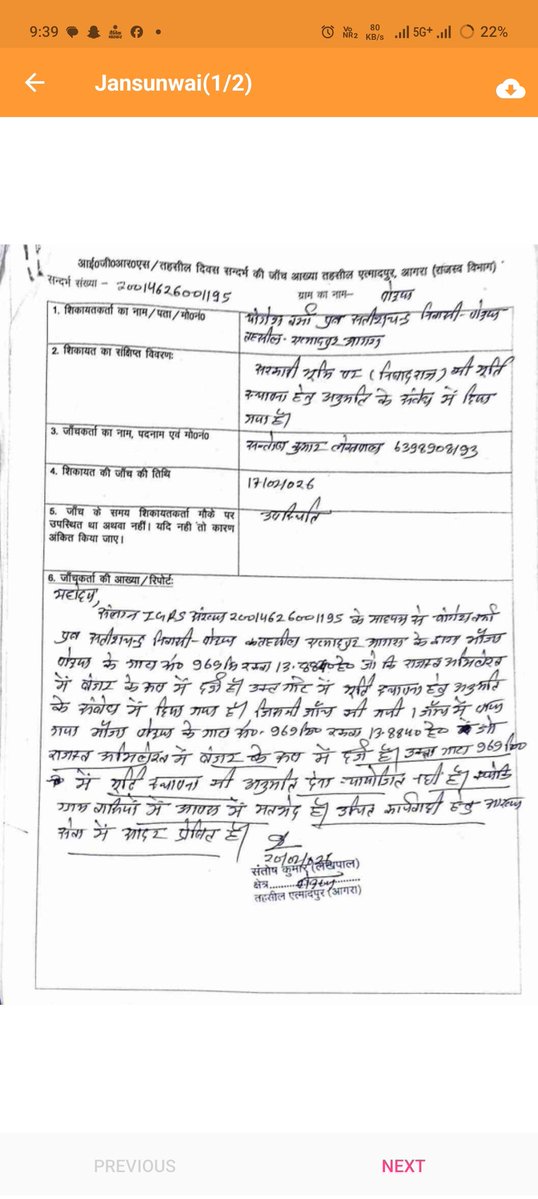 9:39
Vo
NR2
80
KB/s
5G+
22%
Jansunwai(1/2)
आई०जी०आर०एस/तहसील दिवस सन्दर्भ की जाँच आख्या तहसील एत्मादपुर, आगरा (राजस्व विभाग)
सन्दर्भ संख्या - 20014626001195 ग्राम का नाम-
1. शिकायतकर्ता का नाम/पता/मो०नं०
योगेश वर्मा पुत्र सतीशचन्द्र निवासी-
तहसील- एत्मादपुर आगरा
2. शिकायत का संक्षिप्त विवरणः
सरकारी भूमि पर (निषादराज) की मूर्ति
स्थापना हेतु अनुमति के संबंध में दिया
गया है।
3. जाँचकर्ता का नाम, पदनाम एवं मो०नं०
सन्तोष कुमार लेखपाल 6398908193
4. शिकायत की जाँच की तिथि
17/02/026
5. जाँच के समय शिकायतकर्ता मौके पर
उपस्थित था अथवा नहीं। यदि नही तो कारण
अंकित किया जाए।
उपस्थिति
6. जाँचकर्ता की आख्या/रिपोर्टः
महोदय,
संलग्न IGRS संख्या 20014626001195 के माध्यम से योगेश वर्मा
पुत्र सतीशचन्द्र निवासी- तहसील एत्मादपुर आगरा के द्वारा मौजा
के गाटा सं० 969/ रकबा 13.8840 है० जो कि राजस्व अभिलेख
में बंजर के रूप में दर्ज है। उक्त गाटे में मूर्ति स्थापना हेतु अनुमति
के संबंध में दिया गया है। जिसकी जाँच की गयी। जाँच में पाया
गया मौजा के गाटा सं०. 969/ रकबा 13.8840 है० जो
राजस्व अभिलेख में बंजर के रूप में दर्ज है। उक्त गाटा 969/
में मूर्ति स्थापना की अनुमति देना न्यायोचित नहीं है। क्योंकि
ग्राम वासियों में आपस में मतभेद है। उचित कार्यवाही हेतु आख्या
सेवा में सादर प्रेषित है।
20/02/026
संतोष कुमार (लेखपाल)
क्षेत्र
तहसील एत्मादपुर (आगरा)
PREVIOUS
NEXT